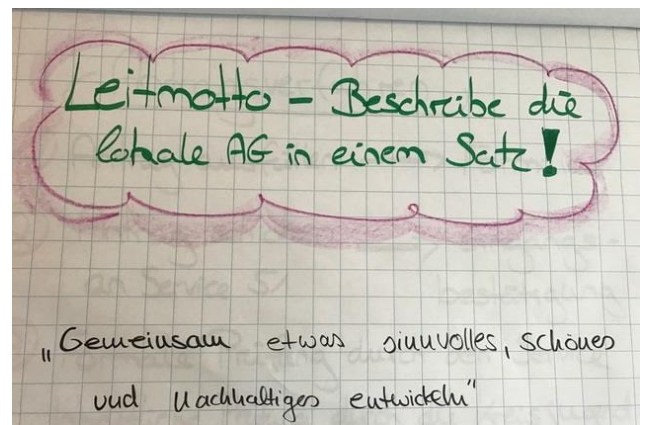 Leitmotto - Beschreibe die
lokale AG in einem Satz!
„Gemeinsam etwas sinnvolles, schönes
und Nachhaltiges entwickeln"